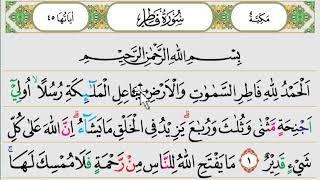 مَكِّيَّةٌ سُورَةُ فَاطِرٍ اٰيَاتُهَا ٤٥
بِسْمِ اللّٰهِ الرَّحْمٰنِ الرَّحِيمِ
اَلْحَمْدُ لِلّٰهِ فَاطِرِ السَّمٰوٰتِ وَالْاَرْضِ جَاعِلِ الْمَلٰٓئِكَةِ رُسُلًا اُولِٓي
اَجْنِحَةٍ مَثْنٰى وَثُلٰثَ وَرُبٰعَ يَزِيدُ فِي الْخَلْقِ مَا يَشَٓاءُ اِنَّ اللّٰهَ عَلٰى كُلِّ
شَيْءٍ قَدِيرٌ ١ مَا يَفْتَحِ اللّٰهُ لِلنَّاسِ مِنْ رَحْمَةٍ فَلَا مُمْسِكَ لَهَا